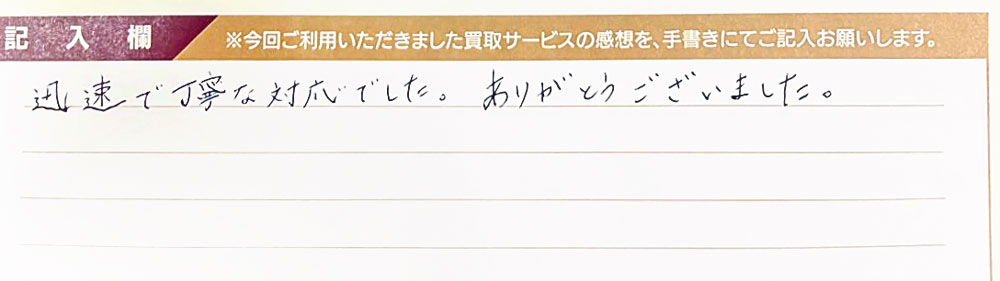 記入欄 ※今回ご利用いただきました買取サービスの感想を、手書きにてご記入お願いします。
迅速で丁寧な対応でした。 ありがとうございました。